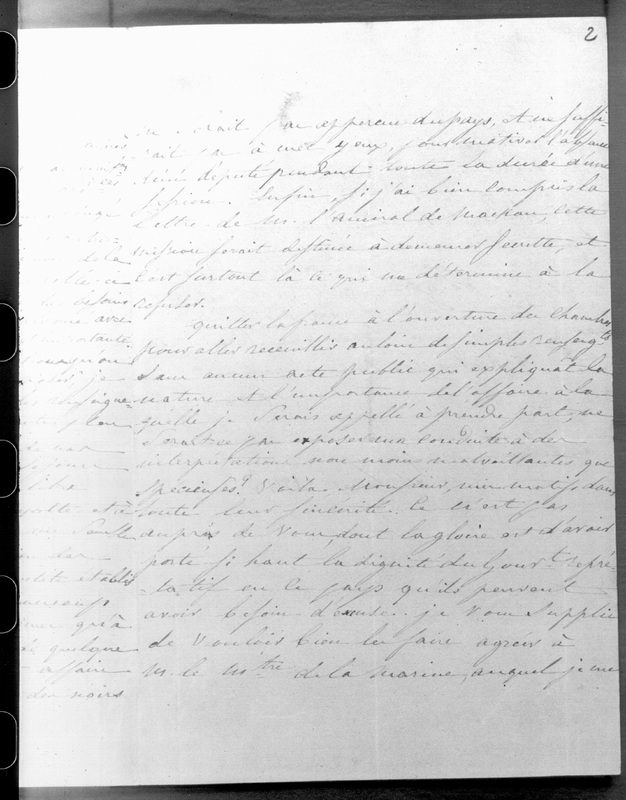 2
serait pas apperçu du pays, et ne suffi-
rait pas à mes yeux, pour motiver l'absence
d'un député pendant toute la durée d'une
Session. Enfin, si j'ai bien compris la
lettre de M. l'amiral de Mackau, cette
mission serait destinée à demeurer secrette, et
c'est surtout là ce qui me détermine à la
refuser.
quitter la france à l'ouverture des Chambres
pour aller recueillir au loin de simples renseig.ts
sans aucun acte public qui expliquât la
nature et l'importance de l'affaire à la
quelle je serois appellé à prendre part, ne
serait-ce pas exposer ma conduite à des
interprétations non moins malveillantes que
spécieuses? Voilà Monsieur, mes motifs dans
toute leur sincérité. Ce n'est pas
auprès de vous dont la gloire est d'avoir
porté si haut la dignité du Gouv.t représen-
-tatif en ce pays qu'ils peuvent
avoir besoin d'excuse. je vous supplie
de vouloir bien les faire agréer à
M. le M.tre de la marine, auquel je me